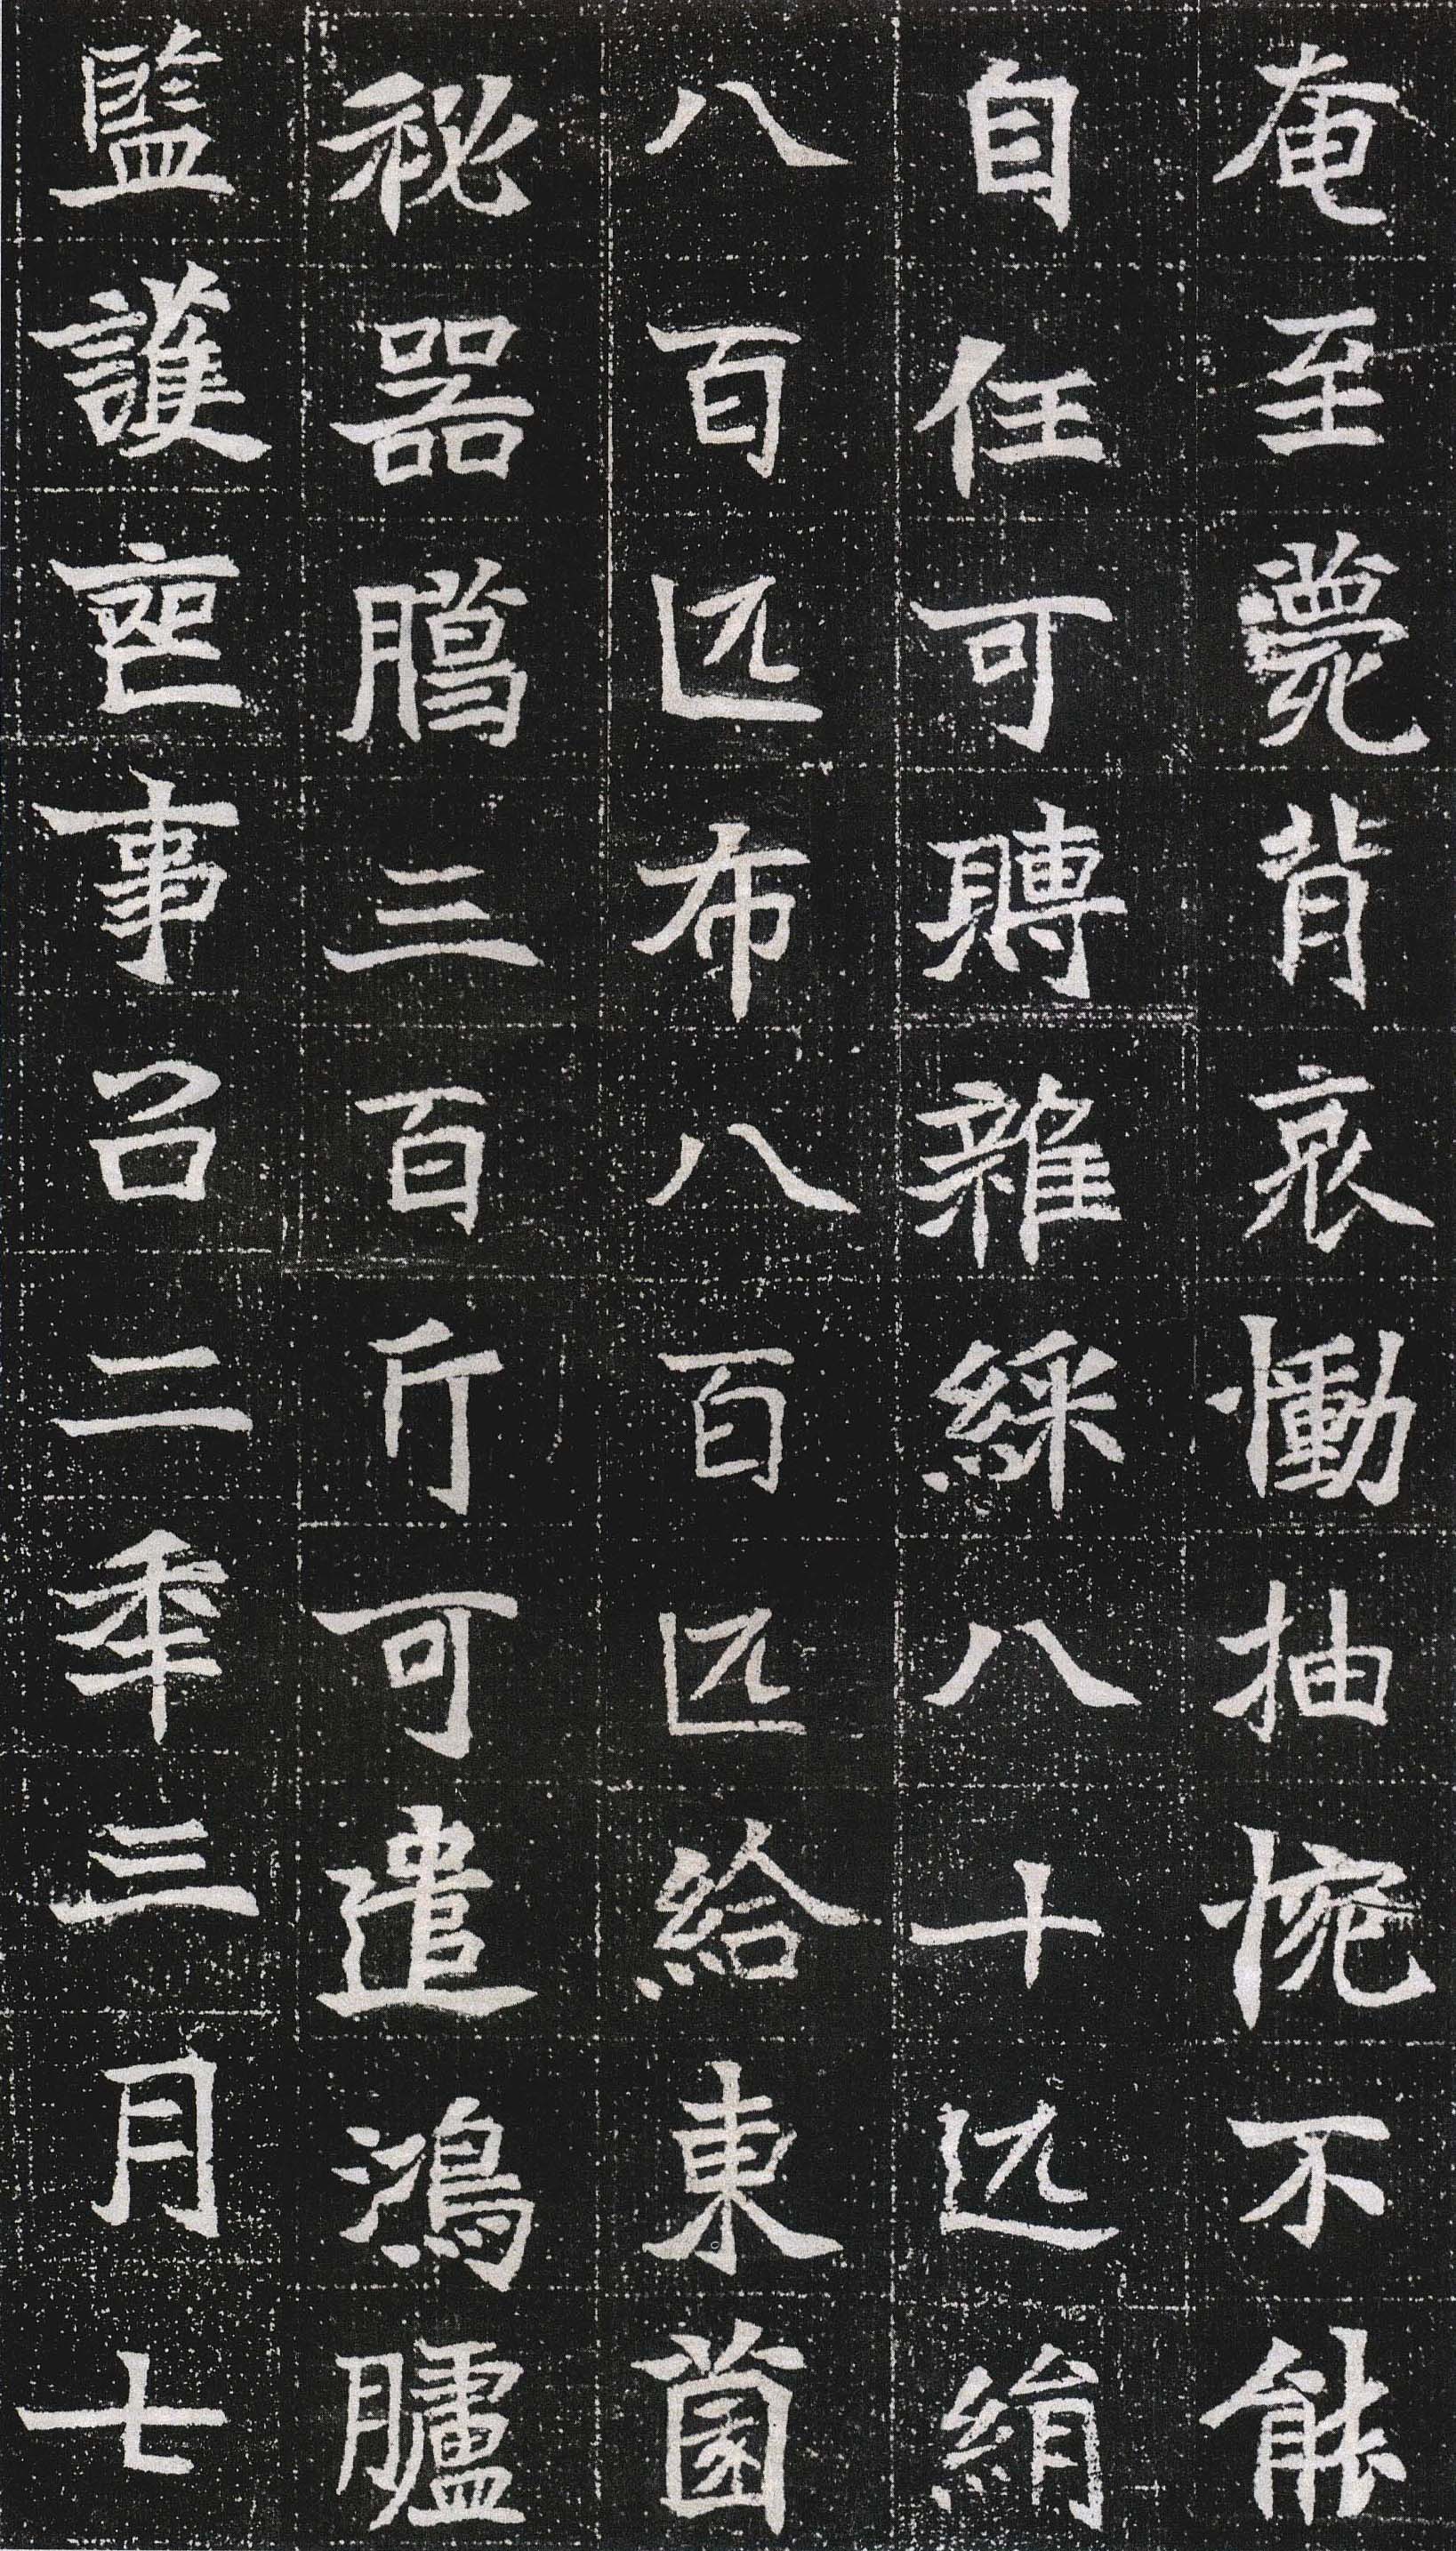 奄至薨背哀慟抽惋不能
自任可賻雜綵八十匹絹
八百匹布八百匹給東園
祕器臈三百斤可遣鴻臚
監護喪事召二年三月七